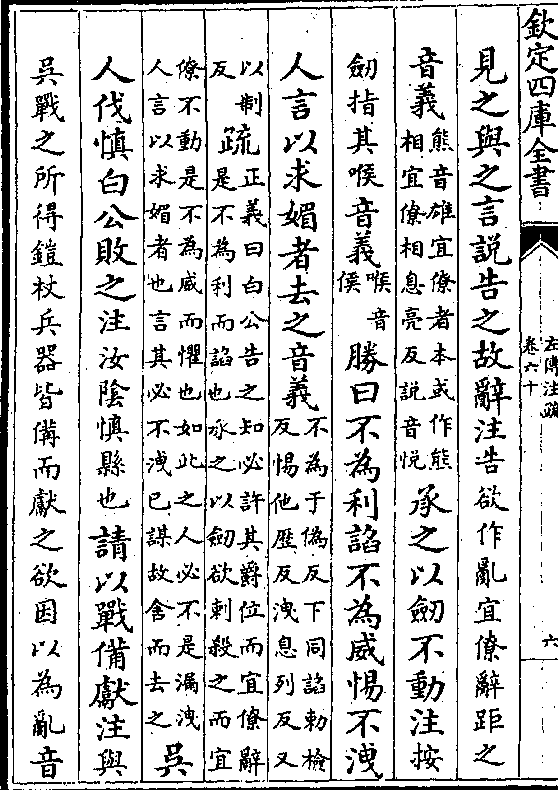 欽定四庫全書
左傳注疏
卷六十
六
見之與之言說告之故辭注告欲作亂宜僚辭距之
音義熊音雄宜僚者本或作熊
相宜僚相息亮反説音悦承之以劒不動注按
劒指其喉音義喉音
侯勝曰不為利諂不為威惕不洩
人言以求媚者去之音義不為于偽反下同諂勅檢
反惕他歴反洩息列反又
以制
反疏正義曰白公告之知必許其爵位而宜僚辭
是不為利而諂也承之以劒欲刺殺之而宜
僚不動是不為威而懼也如此之人必不是漏洩
人言以求媚者也言其必不洩已謀故舍而去之吳
人伐慎白公敗之注汝陰慎縣也請以戰備獻注與
吳戰之所得鎧杖兵器皆備而獻之欲因以為亂音